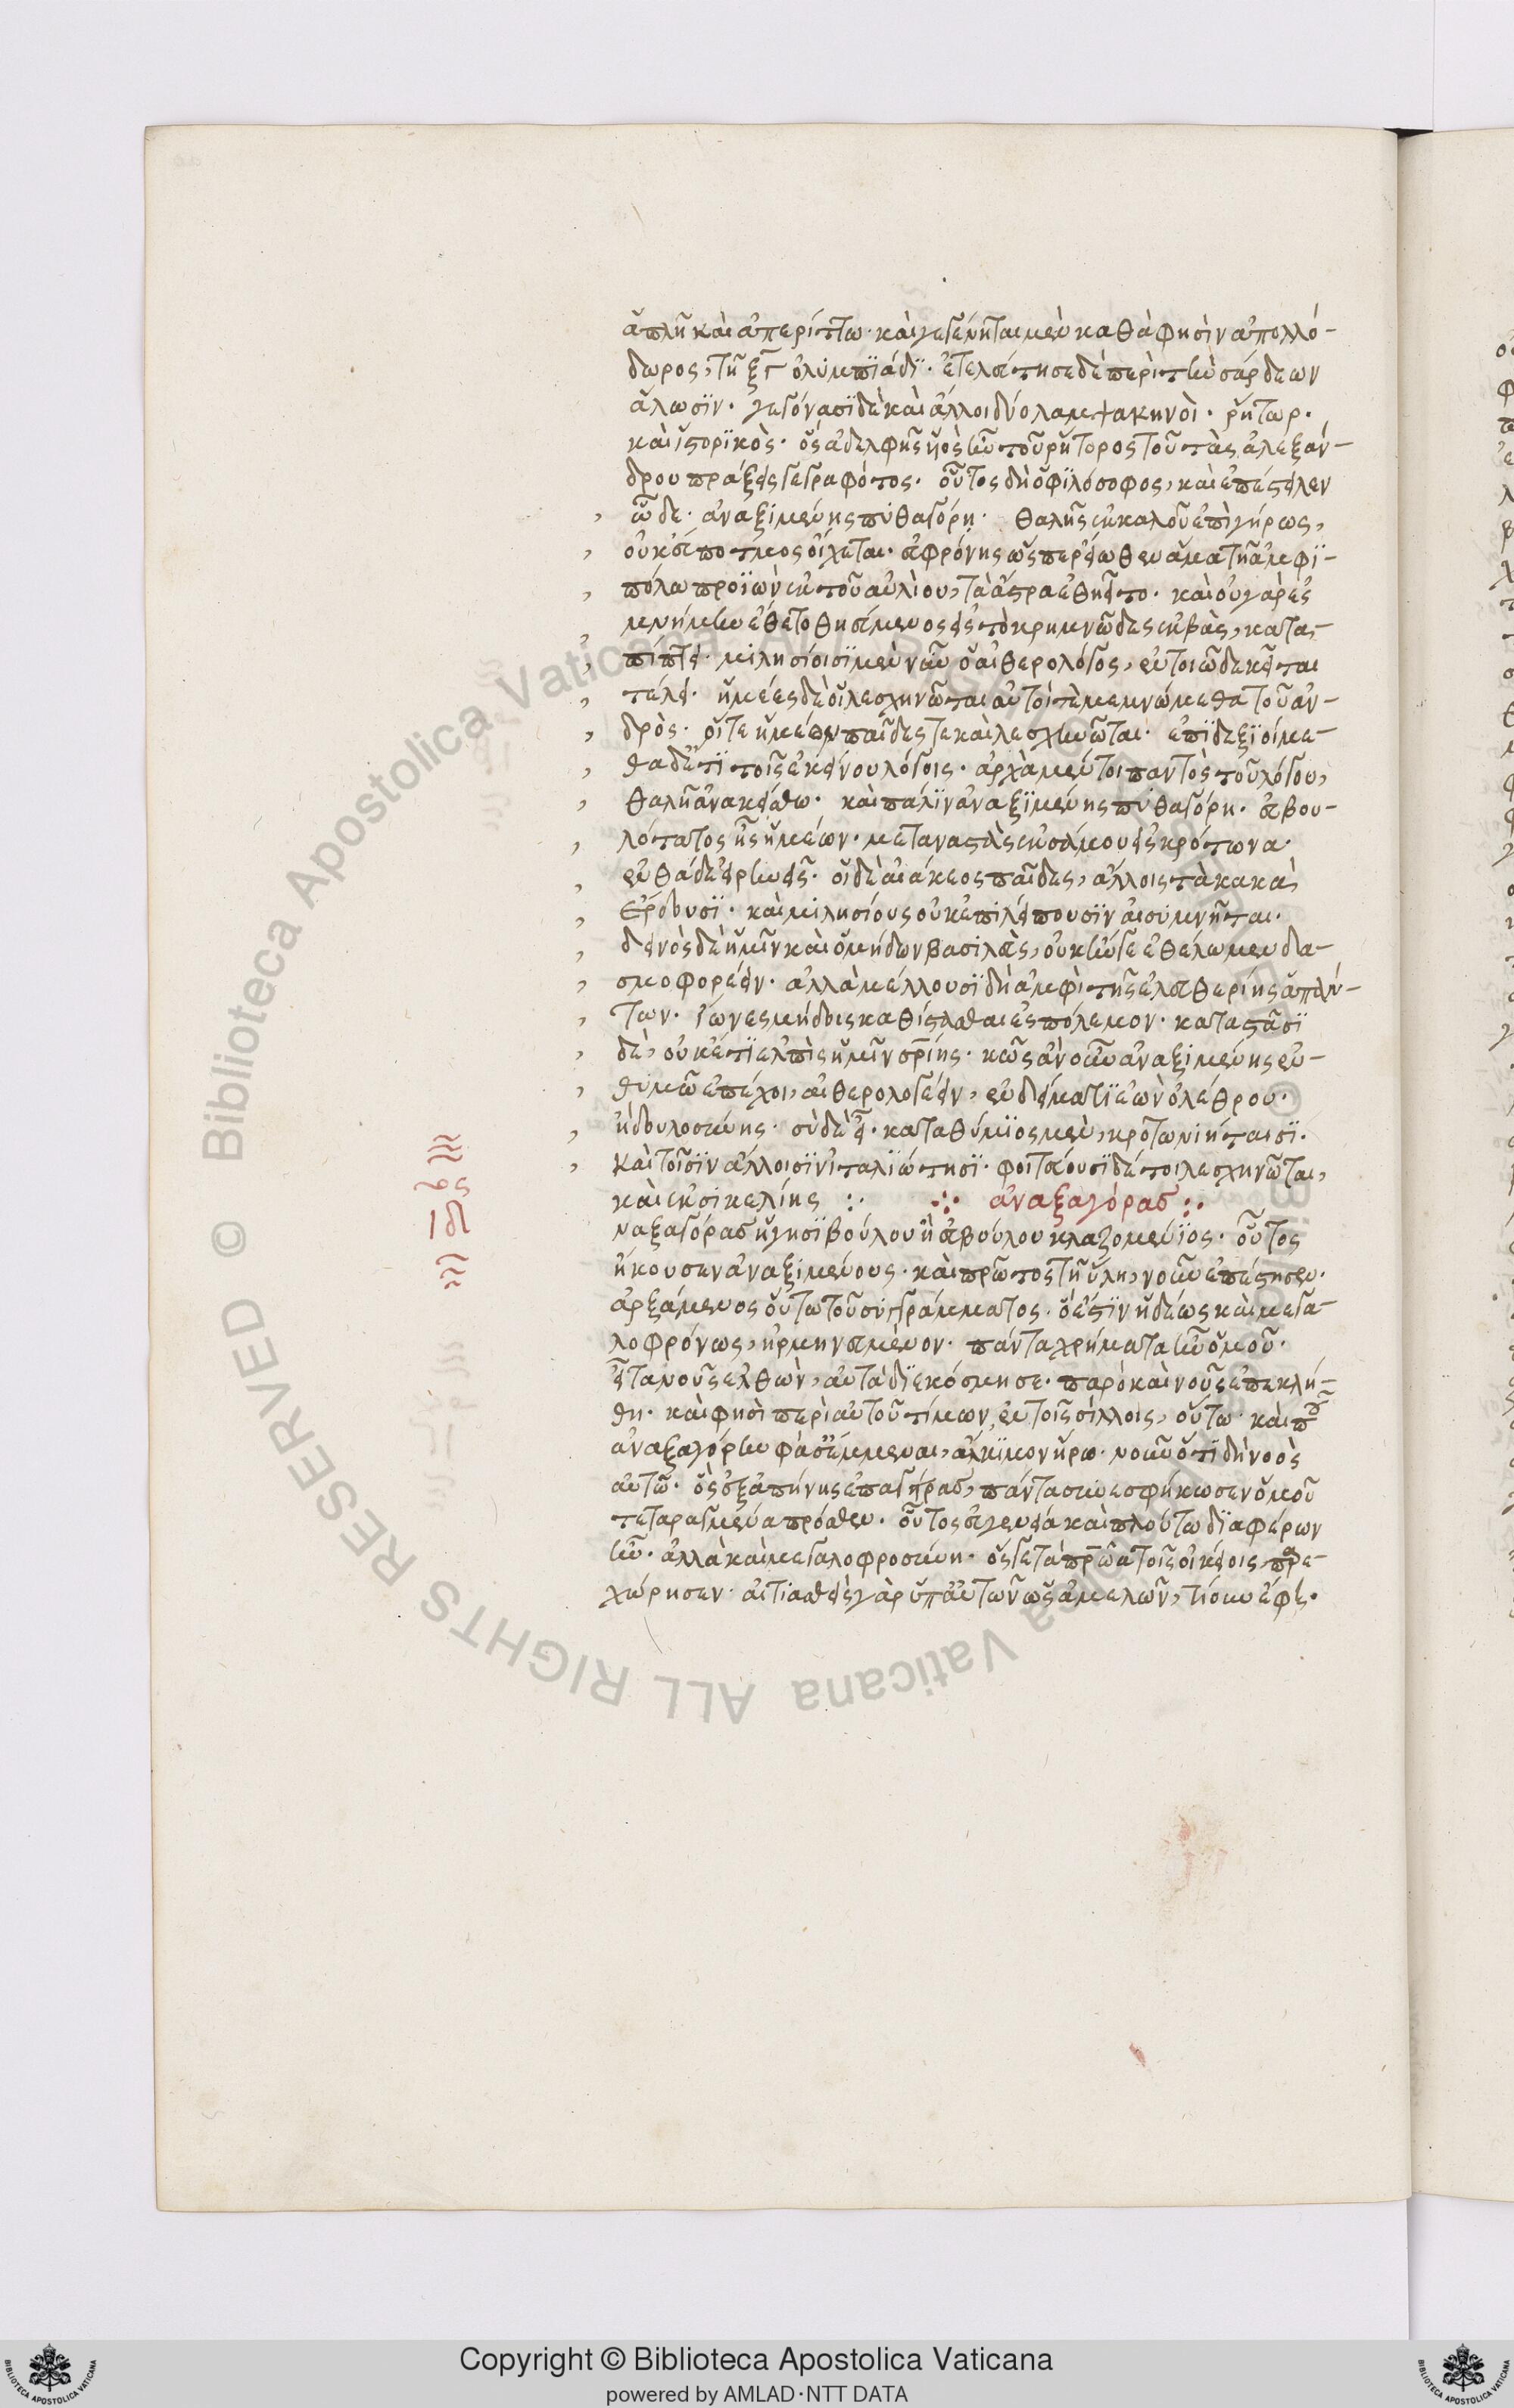 ἁπλῆ καὶ ἀπερίττω· καὶ γεγένηται μὲν καθὰ φησὶν ἀπολλό-
δωρος, τῆ ξγ ὀλυμπϊάδϊ· ἐτελεύτησε δὲ περὶ τὴν σάρδεων
ἅλωσϊν· γεγόνασϊ δὲ καὶ ἄλλοι δύο λαμψακηνοὶ· ῥήτωρ·
καὶ ἱστορϊκὸς· ὃς ἀδελφῆς υἱὸς ἦν τοῦ ῥήτορος τοῦ τὰς ἀλεξάν-
δρου πράξεις γεγραφότος· οὗτος δὴ ὁ φϊλόσοφος, καὶ ἐπέστειλεν
ὧδε· ἀναξιμένης πυθαγόρη· θαλῆς ἐκ καλοῦ ἐπὶ γήρως,
οὐκ εὔποτμος οἴχεται· εὐφρόνης ὥσπερ ἐώθεν ἅμα τῆ ἀμφϊ-
πόλω προϊὼν ἐκ τοῦ αὐλίου, τὰ ἄστρα ἐθηεῖτο· καὶ οὐ γὰρ ἐς
μνήμην ἔθετο θηεύμενος ἐς τὸ κρημνῶδες ἐκβὰς, κατα-
πίπτει· μιλησίοισϊ μὲν νῦν ὁ αἰθερολόγος, ἐν τοιῶδε κεῖται
τέλει· ἡμέες δὲ οἱ λεσχηνῶται αὐτοί τε μεμνώμεθα τοῦ ἀν-
δρὸς· οἵ τε ἡμέων παῖδες τε καὶ λεσχηνῶται· ἐπϊδεξϊοίμε-
θα δ' ἔτϊ τοῖς ἐκείνου λόγοις· ἀρχὰ μέντοι παντὸς τοῦ λόγου,
θαλῆ ἀνακείσθω· καὶ παλϊν ἀναξϊμένης πυθαγόρη· εὐβου-
λότατος ἦς ἡμέων· μεταναστὰς ἐκ σάμου ἐς κρότωνα
ἐνθάδε εἰρηνεῖς· οἱ δὲ αἰάκεος παῖδες, ἄλλοις τὰ κακὰ
ἔρδουσϊ· καὶ μιλησίους οὐκ ἐπιλείπουσϊν αἰσυμνῆται·
δεινὸς δὲ ἡμῖν καὶ ὁ μήδων βασιλεὺς, οὐκ ἤν γε ἐθέλωμεν δα-
σμοφορέειν· ἀλλὰ μέλλουσϊ δὴ ἀμφὶ τῆς ἐλευθερίης ἁπάν-
των· ἴωνες μήδοις καθίστασθαι ἐς πόλεμον· καταστᾶσϊ
δὲ, οὐκέτϊ ἐλπὶς ἡμῖν σρίης· κῶς ἂν οὖν ἀναξιμένης ἐν
θυμῶ ἐπέχοι, αἰθερολογέειν, ἐν δείματϊ ἐὼν ὀλέθρου·
ἢ δουλοσύνης· σὺ δὲ εἶ· καταθύμϊος μὲν, κροτωνιήταισϊ·
καὶ τοῖσϊν ἄλλοισϊν ἰταλϊώτησϊ· φοιτέουσϊ δέ τοι λεσχηνῶται,
καὶ ἐκ σικελίης :· ·:· ἀναξαγόρας :·
ναξαγόρας ἡγησϊβούλου ἢ εὐβούλου κλαζομένϊος· οὗτος
ἤκουσεν ἀναξιμένους· καὶ πρῶτος τῆ ὕλη, νοῦν ἐπέστησεν·
ἀρξάμενος οὕτω τοῦ συγγράμματος· ὅ ἐστϊν ἡδέως καὶ μεγα-
λοφρόνως, ἡρμηνευμένον· πάντα χρήματα ἦν ὁμοῦ·
εἶτα νοῦς ἐλθὼν, αὐτὰ δϊεκόσμησε· παρὸ καὶ νοῦς ἐπεκλή-
θη· καὶ φησὶ περὶ αὐτοῦ τίμων, ἐν τοῖς σίλλοις, οὕτω· καὶ π
ἀναξαγόρην φάσ' ἔμμεναι, ἄλκϊμον ἥρω· νοῦν ὅτϊ δὴ νοὸς
αὐτῶ· ὃς ἐξαπίνης ἐπαγήρας, πάντα συνεσφήκωσεν ὁμοῦ
τεταραγμένα πρόσθεν· οὗτος εὐγενεία καὶ πλούτω δϊαφέρων
ἦν· ἀλλὰ καὶ μεγαλοφροσύνη· ὅς γε τὰ πρῶα τοῖς οἰκείοις παρε-
χώρησεν· αἰτιασθεὶς γὰρ ὑπ' αὐτῶν ὡς ἀμελῶν, τί οὖν ἔφη·
Copyright © Biblioteca Apostolica Vaticana
powered by AMLAD·NTT DATA